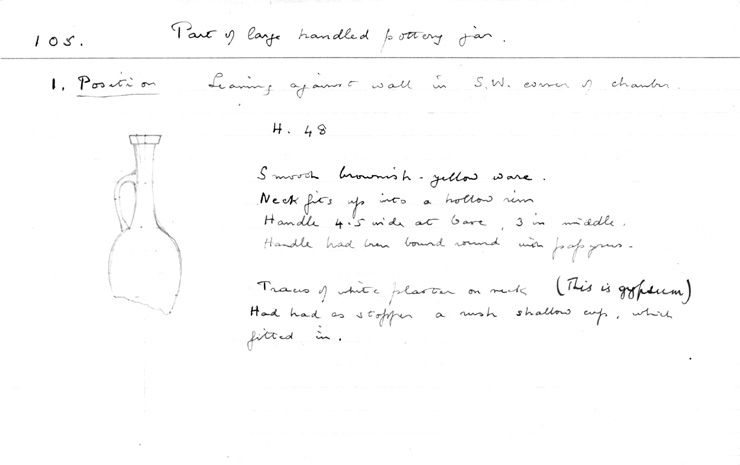 105. Part of large handled pottery jar.
1. Position Leaning against wall in S.W. corner of chamber.
H. 48
Smooth brownish-yellow ware.
Neck fits up into a hollow rim
Handle 4.5 wide at base, 3 in middle.
Handle had been bound round with papyrus.
Traces of white plaster on neck (This is gypsum)
Had had as stopper a rush shallow cup, which
fitted in.